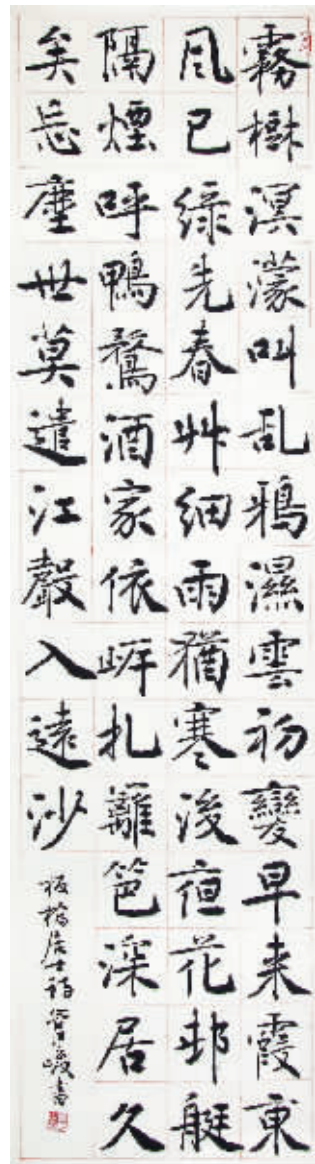 霧樹溟濛叫乱鴉濕雲初變早来霞東
風已緑先春艸細雨猶寒後夜花邨艇
隔煙呼鴨鶩酒家依岸扎籬笆深居久
矣忘塵世莫遣江聲入遠沙
板橋居士詩管峻書